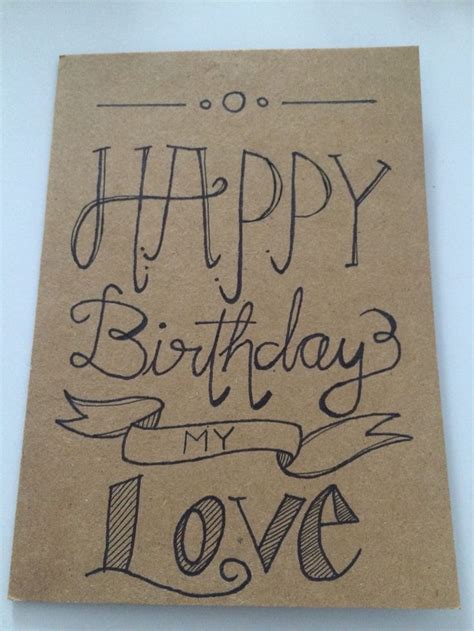 HAPPY
Birthday
MY
Love